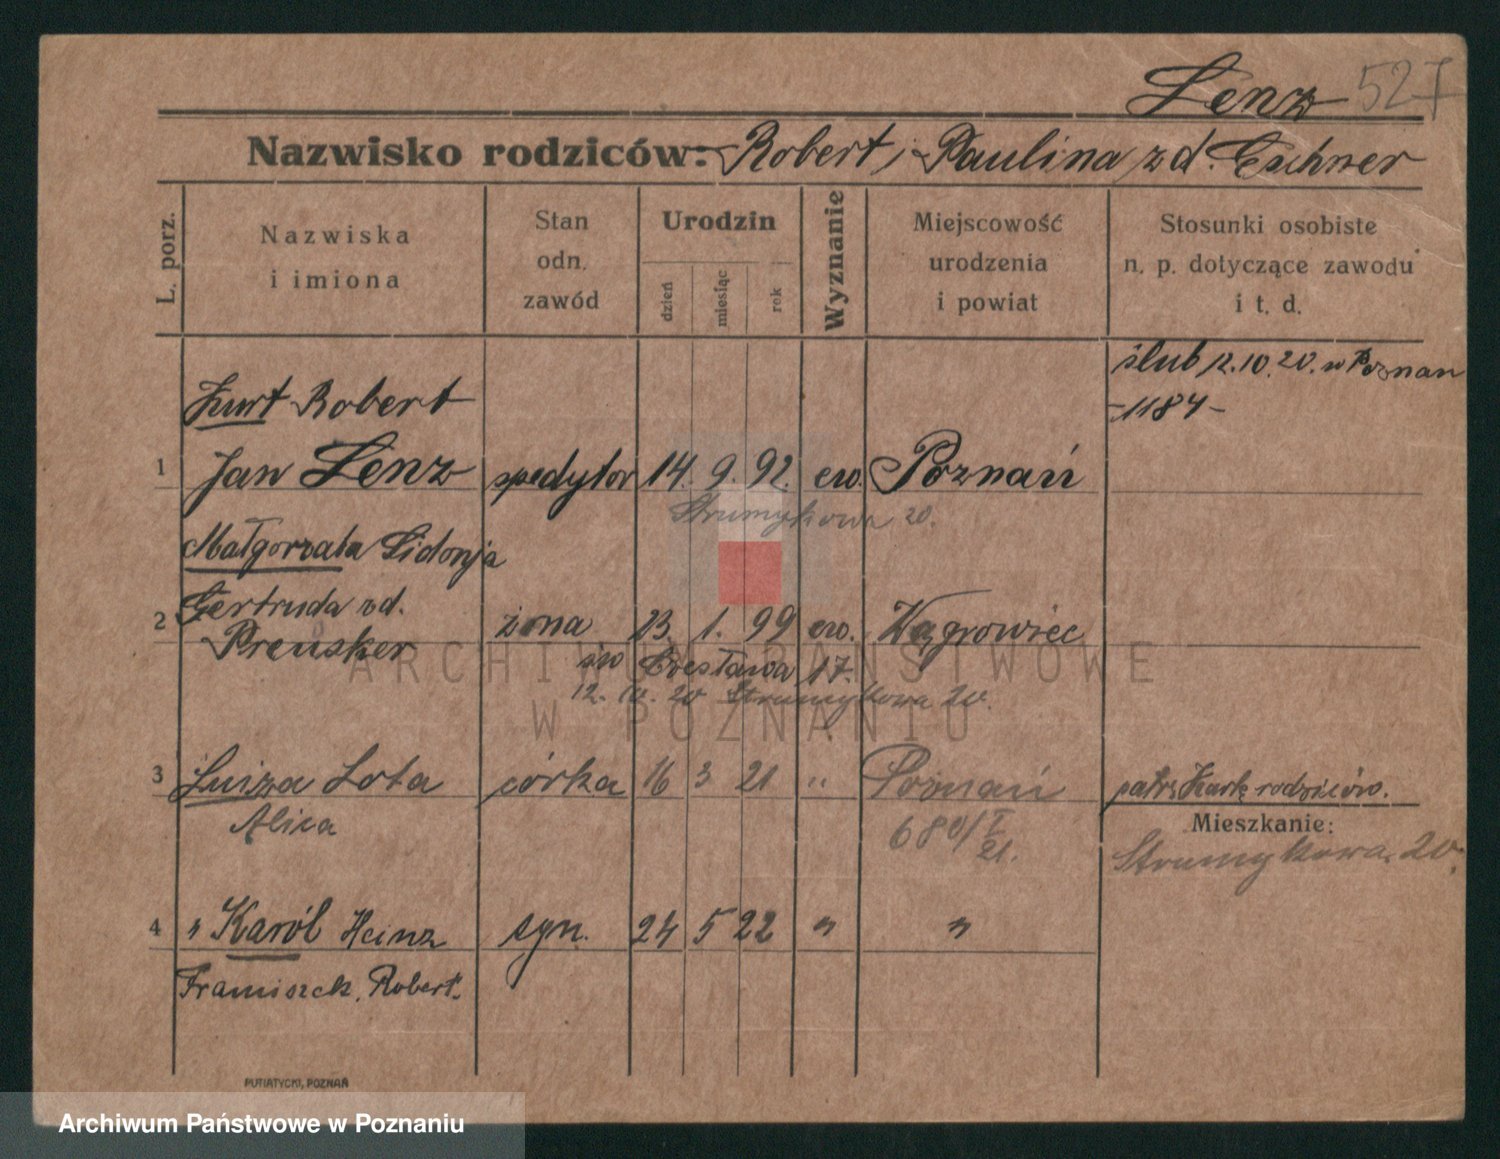 Lenz 527
Nazwisko rodziców: Robert i Paulina zd. Eschner
L. porz.
Nazwiska i imiona
Stan odn. zawód
Urodzin
dzień
miesiąc
rok
Wyznanie
Miejscowość urodzenia i powiat
Stosunki osobiste n. p. dotyczące zawodu i t. d.
ślub 12.10.20. w Poznan
-1184-
Kurt Robert
1 Jan Lenz spedytor 14. 9. 92. ew. Poznań
Strumykowa 20.
Małgorzata Sidonja
2 Gertruda zd. żona 23. 1. 99 ew. Wągrowiec
Preusker
św Czesława 17.
12. 10. 20 Strumykowa 20.
3 Luiza Lota córka 16 3 21 " Poznań patrz Kartę rodziców.
Alica 680/I 21.
Mieszkanie:
Strumykowa 20.
4 " Karól Heinz syn. 24 5 22 " "
Franciszek, Robert.
PUTIATYCKI, POZNAŃ
ARCHIWUM PAŃSTWOWE
W POZNANIU
Archiwum Państwowe w Poznaniu